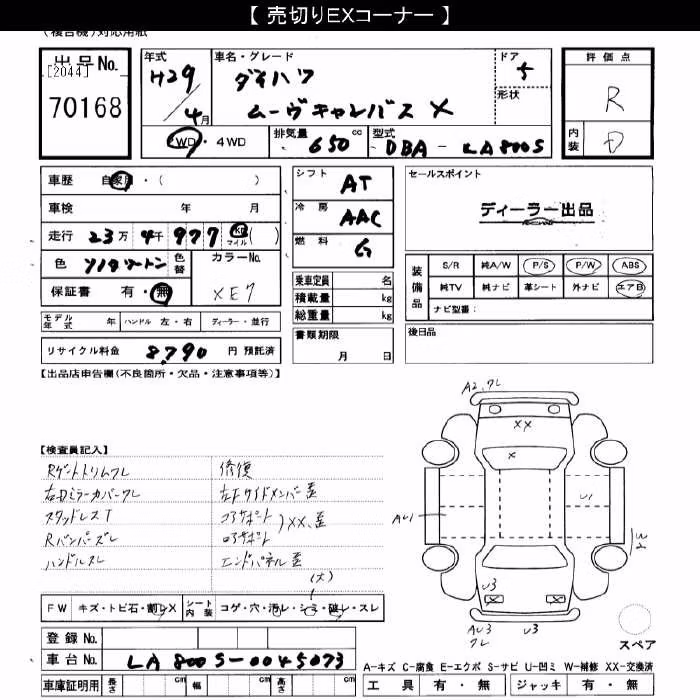 【 売切りEXコーナー 】
(複合機)対応用紙
出品No.
[2044]
70168
年式
H29
／4月
車名・グレード
ダイハツ
ムーヴキャンバス X
ドア
5
形状
評価点
R
内装
D
2WD・4WD
排気量 650 cc
型式 DBA - LA800S
車歴 自家用・( )
車検 年 月
走行 23万 4千 977 km マイル ( )
色 ツートン
色替
カラーNo.
XE7
保証書 有・無
シフト AT
冷房 AAC
燃料 G
乗車定員 名
積載量 kg
総重量 kg
セールスポイント
ディーラー出品
装備品
S/R 純A/W P/S P/W ABS
純TV 純ナビ 革シート 外ナビ エアB
ナビ型番：
モデル年式 年 ハンドル 左・右 ディーラー・並行
リサイクル料金 8,790 円 預託済
書類期限
月 日
後日品
【出品店申告欄(不良箇所・欠品・注意事項等)】
【検査員記入】
Rゲートトリムワレ
右Dミラーカバーワレ
スタッドレスT
Rバンパーズレ
ハンドルスレ
修復
左Fサイドメンバー歪
コアサポート
ロアサポート
)XX、歪
エンドパネル歪
(大)
A2,ワレ
XX
X
AU1
U1
U3
U3
AU3
ワレ
FW キズ・トビ石・割レX
シート内装 コゲ・穴・汚レ・シミ・破レ・スレ
スペア
登録No.
車台No. LA800S-0045073
A-キズ C-腐食 E-エクボ S-サビ U-凹ミ W-補修 XX-交換済
車庫証明用 長さ cm 幅 cm 高さ cm
工具 有・無 ジャッキ 有・無